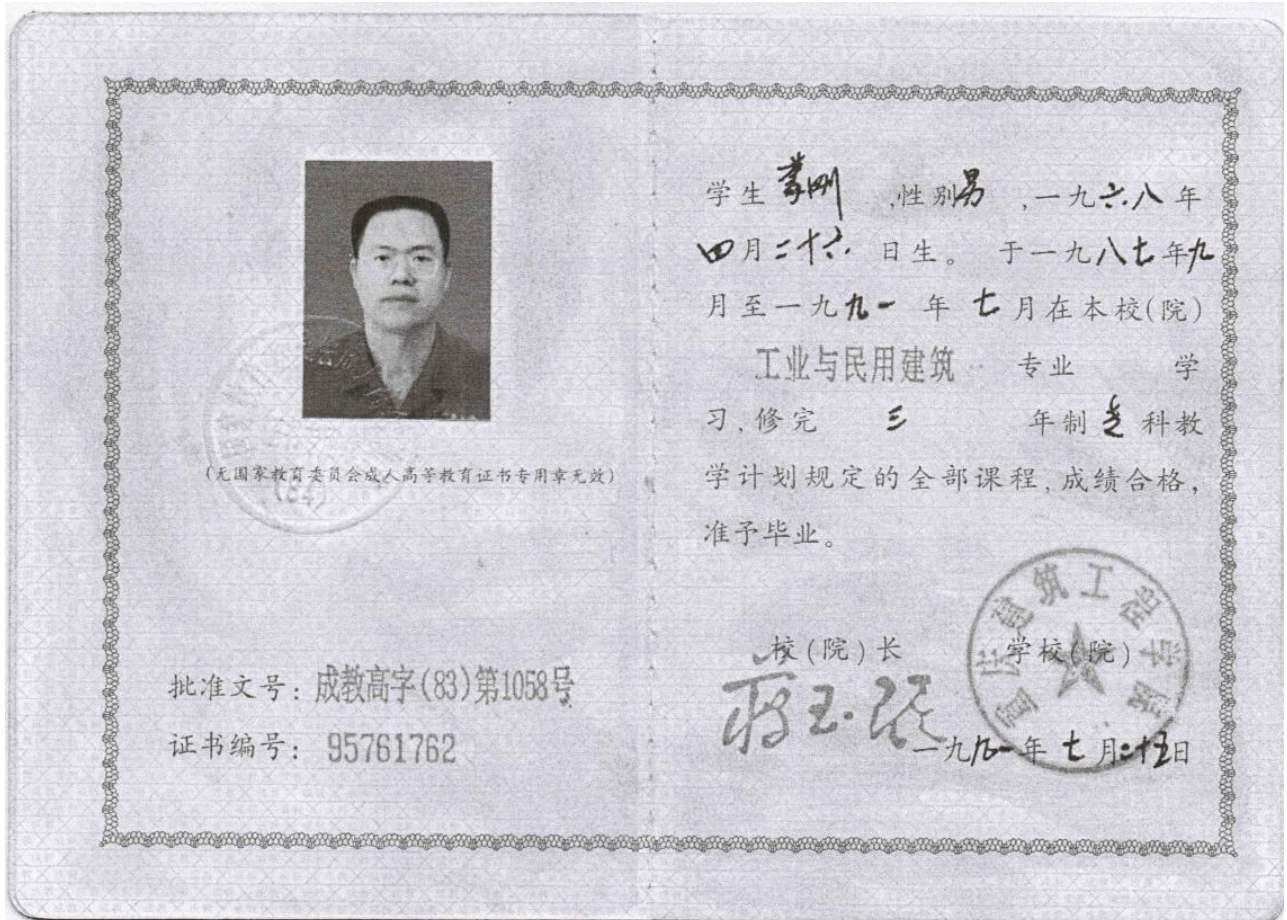 (无国家教育委员会成人高等教育证书专用章无效)
批准文号：成教高字(83)第1058号
证书编号：95761762
学生 刚 ,性别男 ,一九六八年
四月二十六 日生。 于一九八七年九
月至一九九一 年 七月在本校(院)
工业与民用建筑 专业 学
习,修完 三 年制专科教
学计划规定的全部课程,成绩合格,
准予毕业。
校(院)长 学校(院)
重庆建筑工程学院
一九九一年七月二十五日